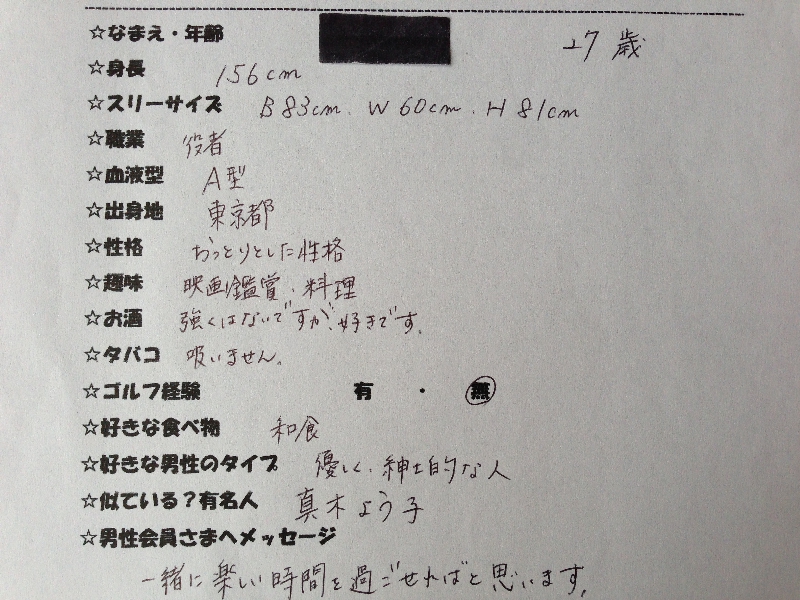 ☆なまえ・年齢 27歳
☆身長 156cm
☆スリーサイズ B83cm. W60cm. H81cm
☆職業 役者
☆血液型 A型
☆出身地 東京都
☆性格 おっとりとした性格
☆趣味 映画鑑賞・料理
☆お酒 強くはないですが、好きです。
☆タバコ 吸いません。
☆ゴルフ経験 有 ・ 無
☆好きな食べ物 和食
☆好きな男性のタイプ 優しく、紳士的な人
☆似ている?有名人 真木よう子
☆男性会員さまへメッセージ
一緒に楽しい時間を過ごせればと思います。